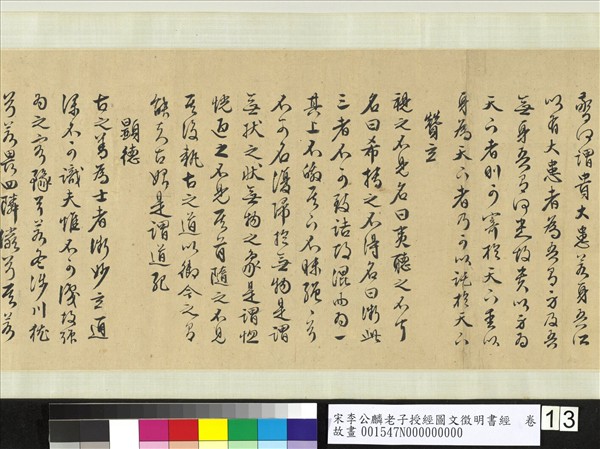 辱何謂貴大患若身吾所
以有大患者為吾有身及吾
無身吾有何患故貴以身為
天下者則可寄於天下愛以
身為天下者乃可以託於天下
贊玄
視之不見名曰夷聽之不聞
名曰希搏之不得名曰微此
三者不可致詰故混而為一
其上不皦其下不昧繩繩兮
不可名復歸於無物是謂
無狀之狀無物之象是謂惚
恍迎之不見其首隨之不見
其後執古之道以御今之有
能知古始是謂道紀
顯德
古之善為士者微妙玄通
深不可識夫惟不可識故強
為之容豫兮若冬涉川猶
兮若畏四隣儼兮其若
宋李公麟老子授經圖文徵明書經 卷
故畫 001547N000000000
13